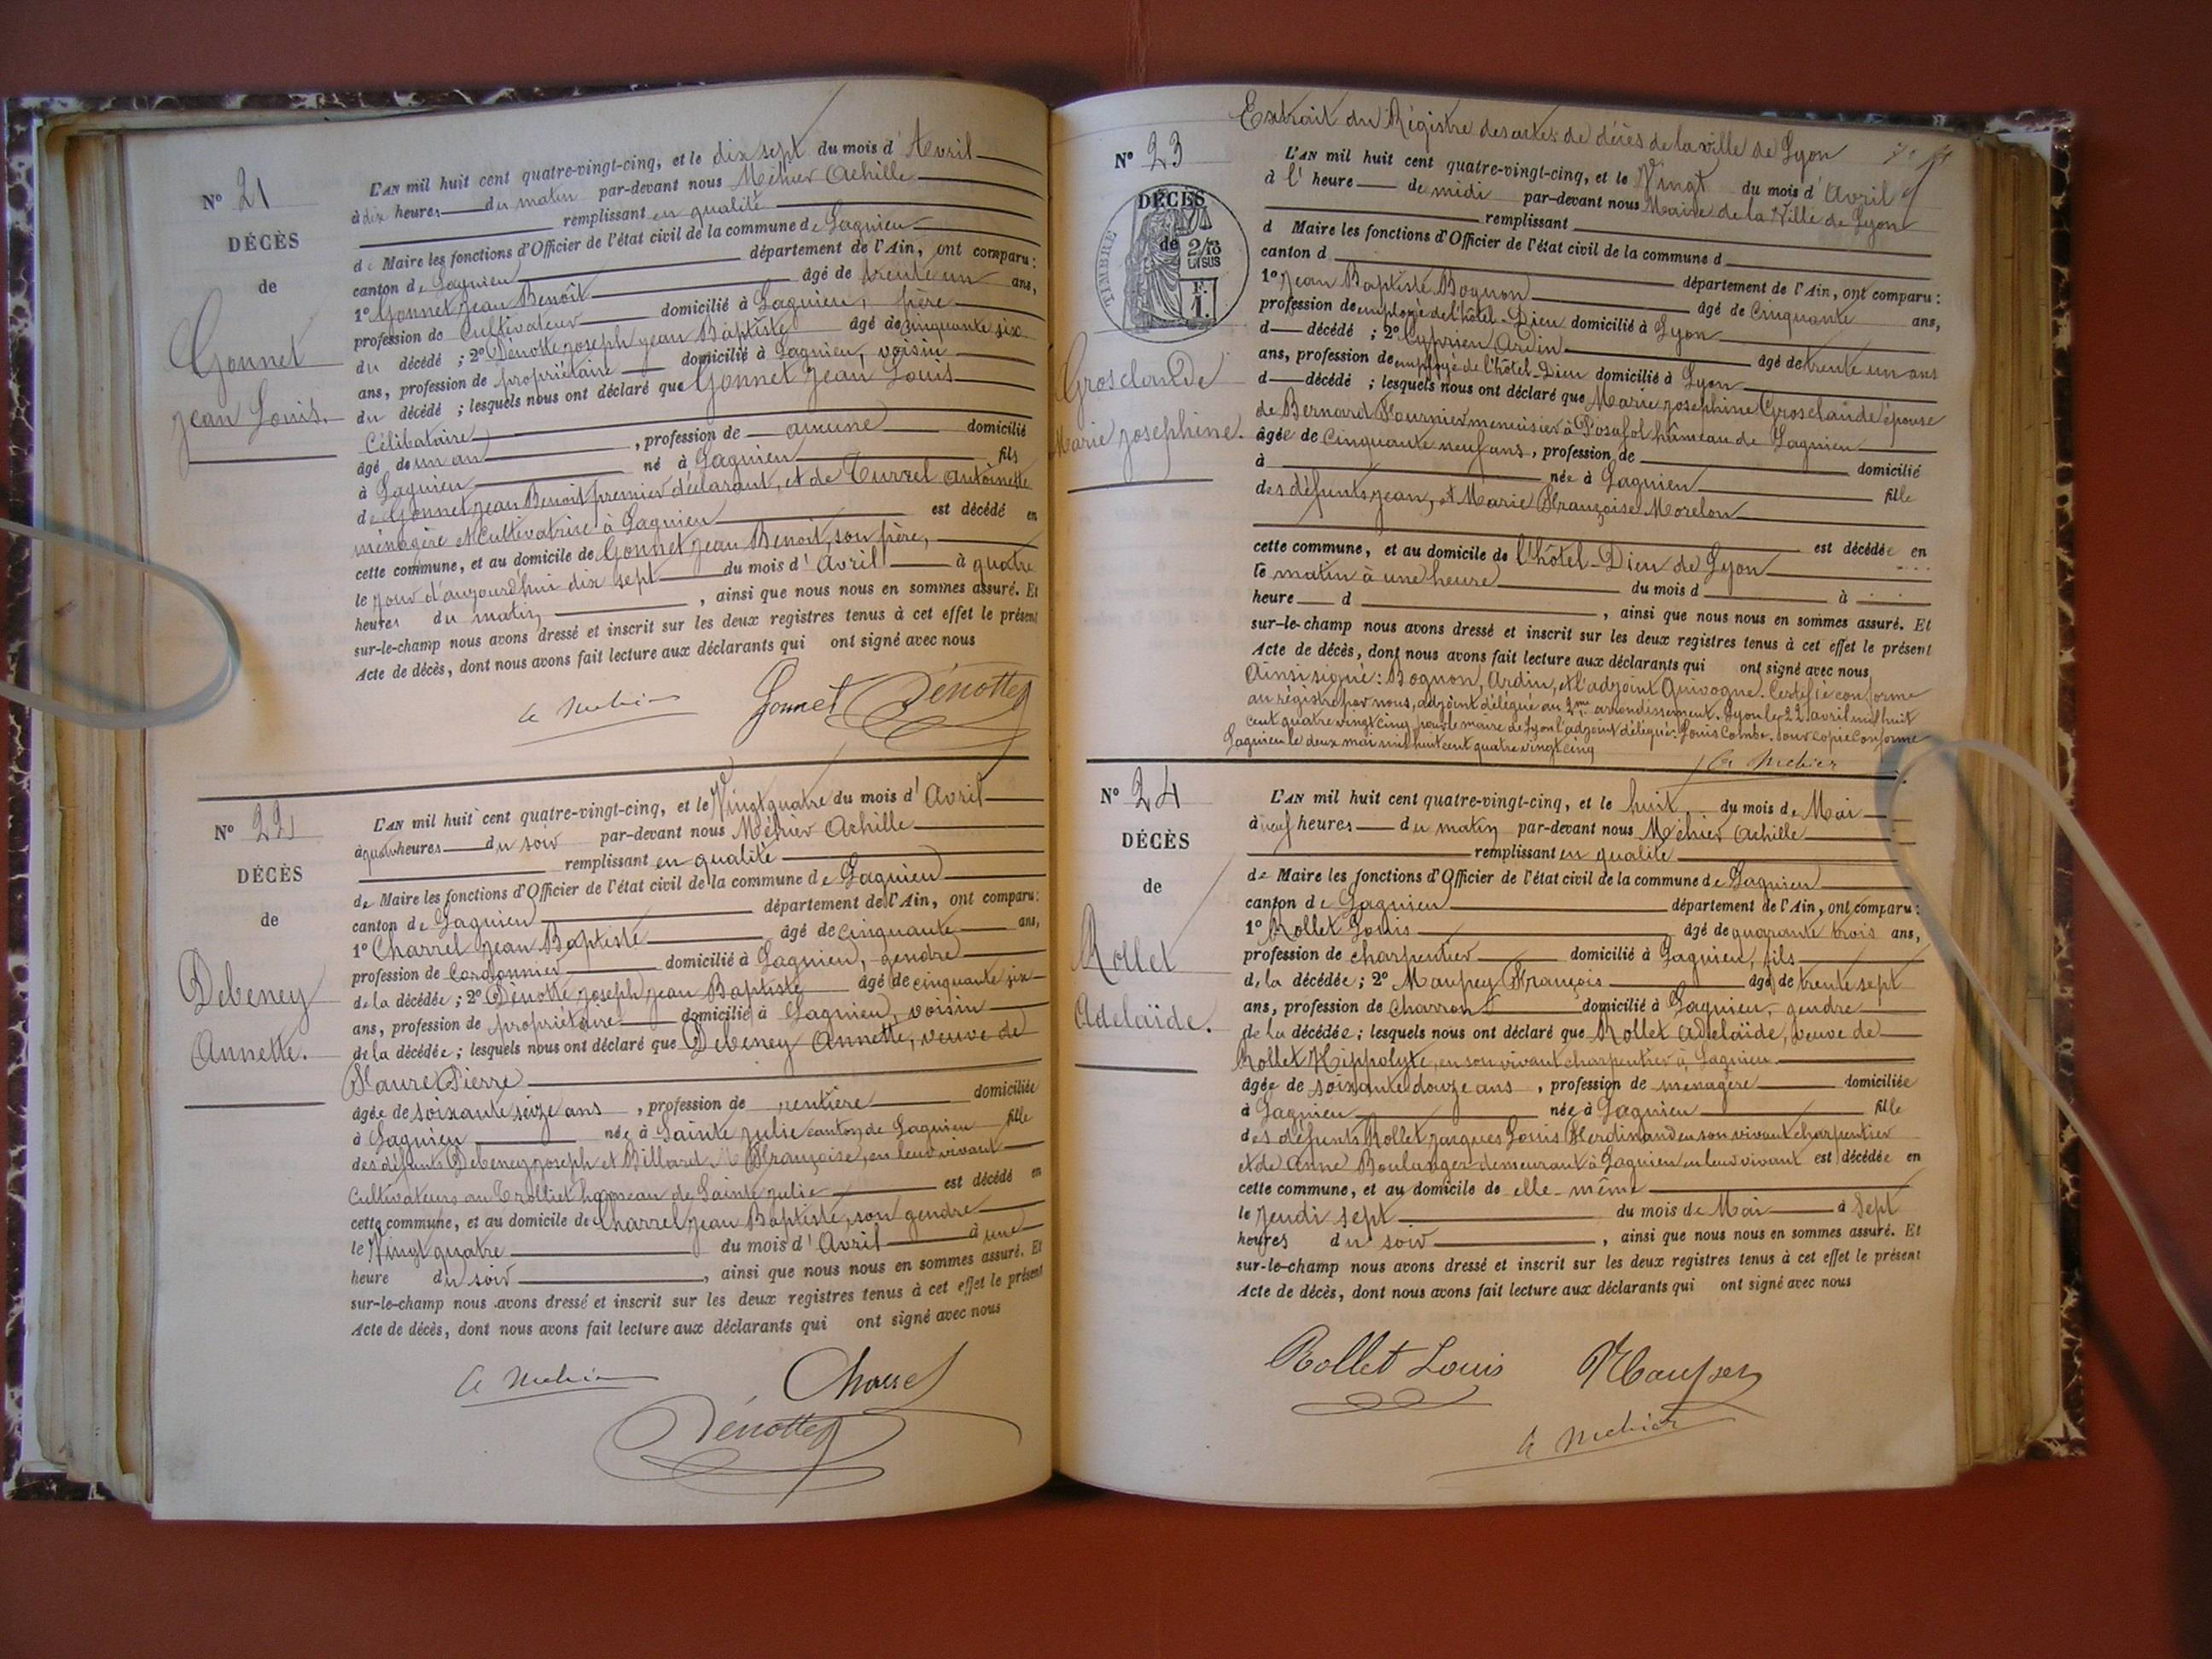 N° 21
DÉCÈS
de
Gonnet
Jean Louis.
L'AN mil huit cent quatre-vingt-cinq, et le dix sept du mois d'Avril
à dix heures du matin par-devant nous Méhier Achille
remplissant en qualité
de Maire les fonctions d'Officier de l'état civil de la commune de Lagnieu
canton de Lagnieu département de l'Ain, ont comparu:
1° Gonnet Jean Benoît âgé de trente un ans,
profession de Cultivateur domicilié à Lagnieu, père
du décédé ; 2° Dénotte Joseph Jean Baptiste âgé de cinquante six
ans, profession de propriétaire domicilié à Lagnieu, voisin
du décédé ; lesquels nous ont déclaré que Gonnet Jean Louis
Célibataire
âgé de un an , profession de aucune domicilié
à Lagnieu né à Lagnieu fils
de Gonnet Jean Benoit premier déclarant, et de Turrel Antoinette
ménagère et Cultivatrice à Lagnieu est décédé en
cette commune, et au domicile de Gonnet Jean Benoit, son père,
le jour d'aujourd'hui dix sept du mois d'Avril à quatre
heures du matin , ainsi que nous nous en sommes assuré. Et
sur-le-champ nous avons dressé et inscrit sur les deux registres tenus à cet effet le présent
Acte de décès, dont nous avons fait lecture aux déclarants qui ont signé avec nous
A Mehier Gonnet Dénotte
N° 22
DÉCÈS
de
Debeney
Annette.
L'AN mil huit cent quatre-vingt-cinq, et le Vingt quatre du mois d'Avril
à quatre heures du soir par-devant nous Méhier Achille
remplissant en qualité
de Maire les fonctions d'Officier de l'état civil de la commune de Lagnieu
canton de Lagnieu département de l'Ain, ont comparu:
1° Charrel Jean Baptiste âgé de cinquante ans,
profession de Cordonnier domicilié à Lagnieu, gendre
de la décédée ; 2° Dénotte Joseph Jean Baptiste âgé de cinquante six
ans, profession de propriétaire domicilié à Lagnieu, voisin
de la décédée ; lesquels nous ont déclaré que Debeney Annette, veuve de
Faure Pierre
âgée de soixante seize ans , profession de rentière domiciliée
à Lagnieu née à Sainte Julie canton de Lagnieu fille
des défunts Debeney Joseph et Billard Françoise, en leur vivant
Cultivateurs au Trolliet hameau de Sainte Julie est décédé en
cette commune, et au domicile de Charrel Jean Baptiste, son gendre
le Vingt quatre du mois d'Avril à une
heure du soir , ainsi que nous nous en sommes assuré. Et
sur-le-champ nous avons dressé et inscrit sur les deux registres tenus à cet effet le présent
Acte de décès, dont nous avons fait lecture aux déclarants qui ont signé avec nous
A Mehier Charrel
Dénotte
Extrait du Régistre des actes de décès de la ville de Lyon
N° 23
DÉCÈS
de
TIMBRE
2/10
EN SUS
F.
1.
Grosclaude
Marie Josephine.
L'AN mil huit cent quatre-vingt-cinq, et le Vingt du mois d'Avril
à l'heure de midi par-devant nous Maire de la Ville de Lyon
remplissant
d Maire les fonctions d'Officier de l'état civil de la commune d
canton d département de l'Ain, ont comparu:
1° Jean Baptiste Bognon âgé de Cinquante ans,
profession de employé de l'hôtel-Dieu domicilié à Lyon
d décédé ; 2° Cyprien Ardin âgé de trente un ans
ans, profession de employé de l'hôtel-Dieu domicilié à Lyon
d décédé ; lesquels nous ont déclaré que Marie Josephine Grosclaude épouse
de Bernard Fournier menuisier à Posafol hâmeau de Lagnieu
âgée de Cinquante neuf ans, profession de domicilié
à née à Lagnieu fille
des défunts Jean, et Marie Françoise Morelon
est décédée en
cette commune, et au domicile de l'hôtel-Dieu de Lyon
le matin à une heure du mois d à
heure d , ainsi que nous nous en sommes assuré. Et
sur-le-champ nous avons dressé et inscrit sur les deux registres tenus à cet effet le présent
Acte de décès, dont nous avons fait lecture aux déclarants qui ont signé avec nous
Ainsi signé : Bognon, Ardin, et l'adjoint Quivogne. Certifié conforme
au régistre par nous, adjoint délégué au 2me arrondissement. Lyon le 22 avril mil huit
cent quatre vingt cinq pour le maire de Lyon l'adjoint délégué: Louis Combe. Pour copie Conforme
Lagnieu le deux mai mil huit cent quatre vingt cinq
A Mehier
N° 24
DÉCÈS
de
Rollet
Adelaïde.
L'AN mil huit cent quatre-vingt-cinq, et le huit du mois de Mai
à neuf heures du matin par-devant nous Méhier Achille
remplissant en qualité
de Maire les fonctions d'Officier de l'état civil de la commune de Lagnieu
canton de Lagnieu département de l'Ain, ont comparu:
1° Rollet Louis âgé de quarante trois ans,
profession de charpentier domicilié à Lagnieu, fils
de la décédée; 2° Maupey François âgé de trente sept
ans, profession de Charron domicilié à Lagnieu, gendre
de la décédée; lesquels nous ont déclaré que Rollet Adelaïde, Veuve de
Rollet Hippolyte, en son vivant charpentier à Lagnieu
âgée de soixante douze ans , profession de ménagère domiciliée
à Lagnieu née à Lagnieu fille
des défunts Rollet Jacques Louis Ferdinand en son vivant charpentier
et de Anne Boulanger demeurant à Lagnieu en leur vivant est décédée en
cette commune, et au domicile de elle-même
le Jeudi sept du mois de Mai à Sept
heures du soir , ainsi que nous nous en sommes assuré. Et
sur-le-champ nous avons dressé et inscrit sur les deux registres tenus à cet effet le présent
Acte de décès, dont nous avons fait lecture aux déclarants qui ont signé avec nous
Rollet Louis Maupey
A Mehier